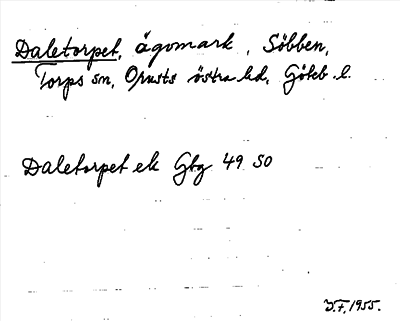 Daletorpet, ägomark, Söbben,
Torps sn, Orusts östra hd, Göteb. l.
Daletorpet ek Gbg 49 SO
V.F. 1955.